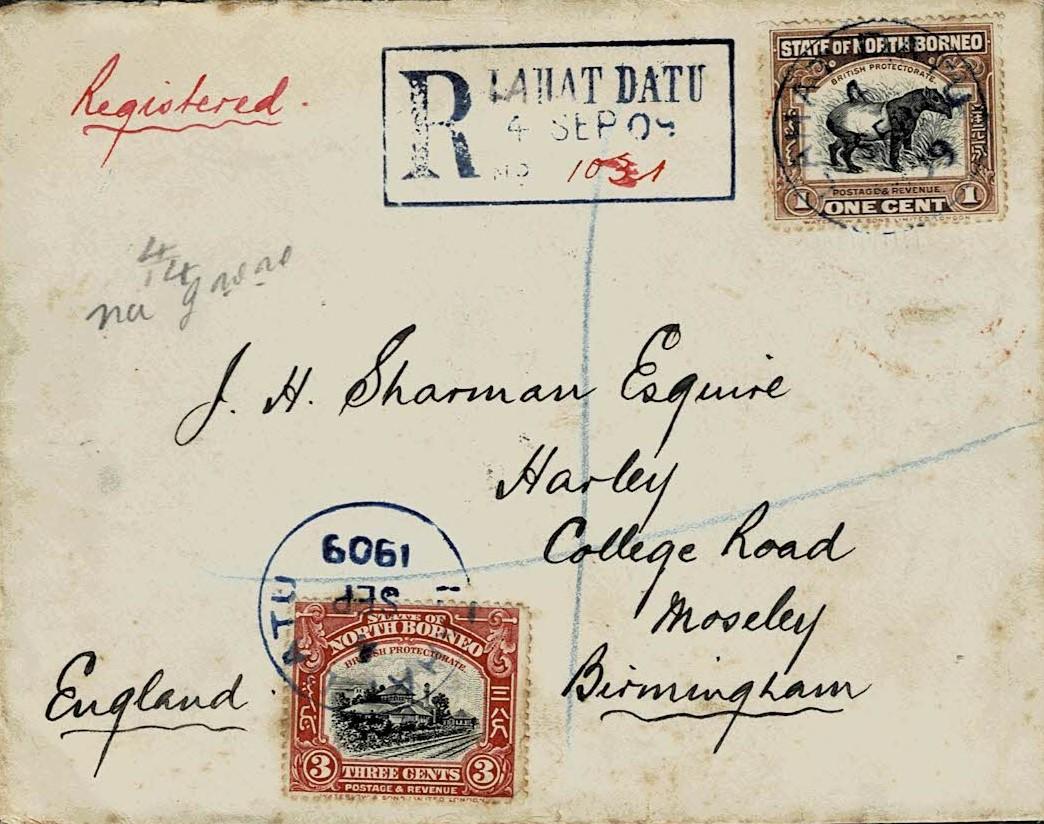 Registered.
R LAHAT DATU
4 SEP 09
No 1031
STATE OF NORTH BORNEO
BRITISH PROTECTORATE.
POSTAGE & REVENUE
1 ONE CENT 1
WATERLOW & SONS LIMITED LONDON
4/14
J. H. Sharman Esquire
Harley
College Road
Moseley
Birmingham
England
1909
SEP
ATU
STATE OF
NORTH BORNEO
BRITISH PROTECTORATE.
3 THREE CENTS 3
POSTAGE & REVENUE
WATERLOW & SONS LIMITED LONDON